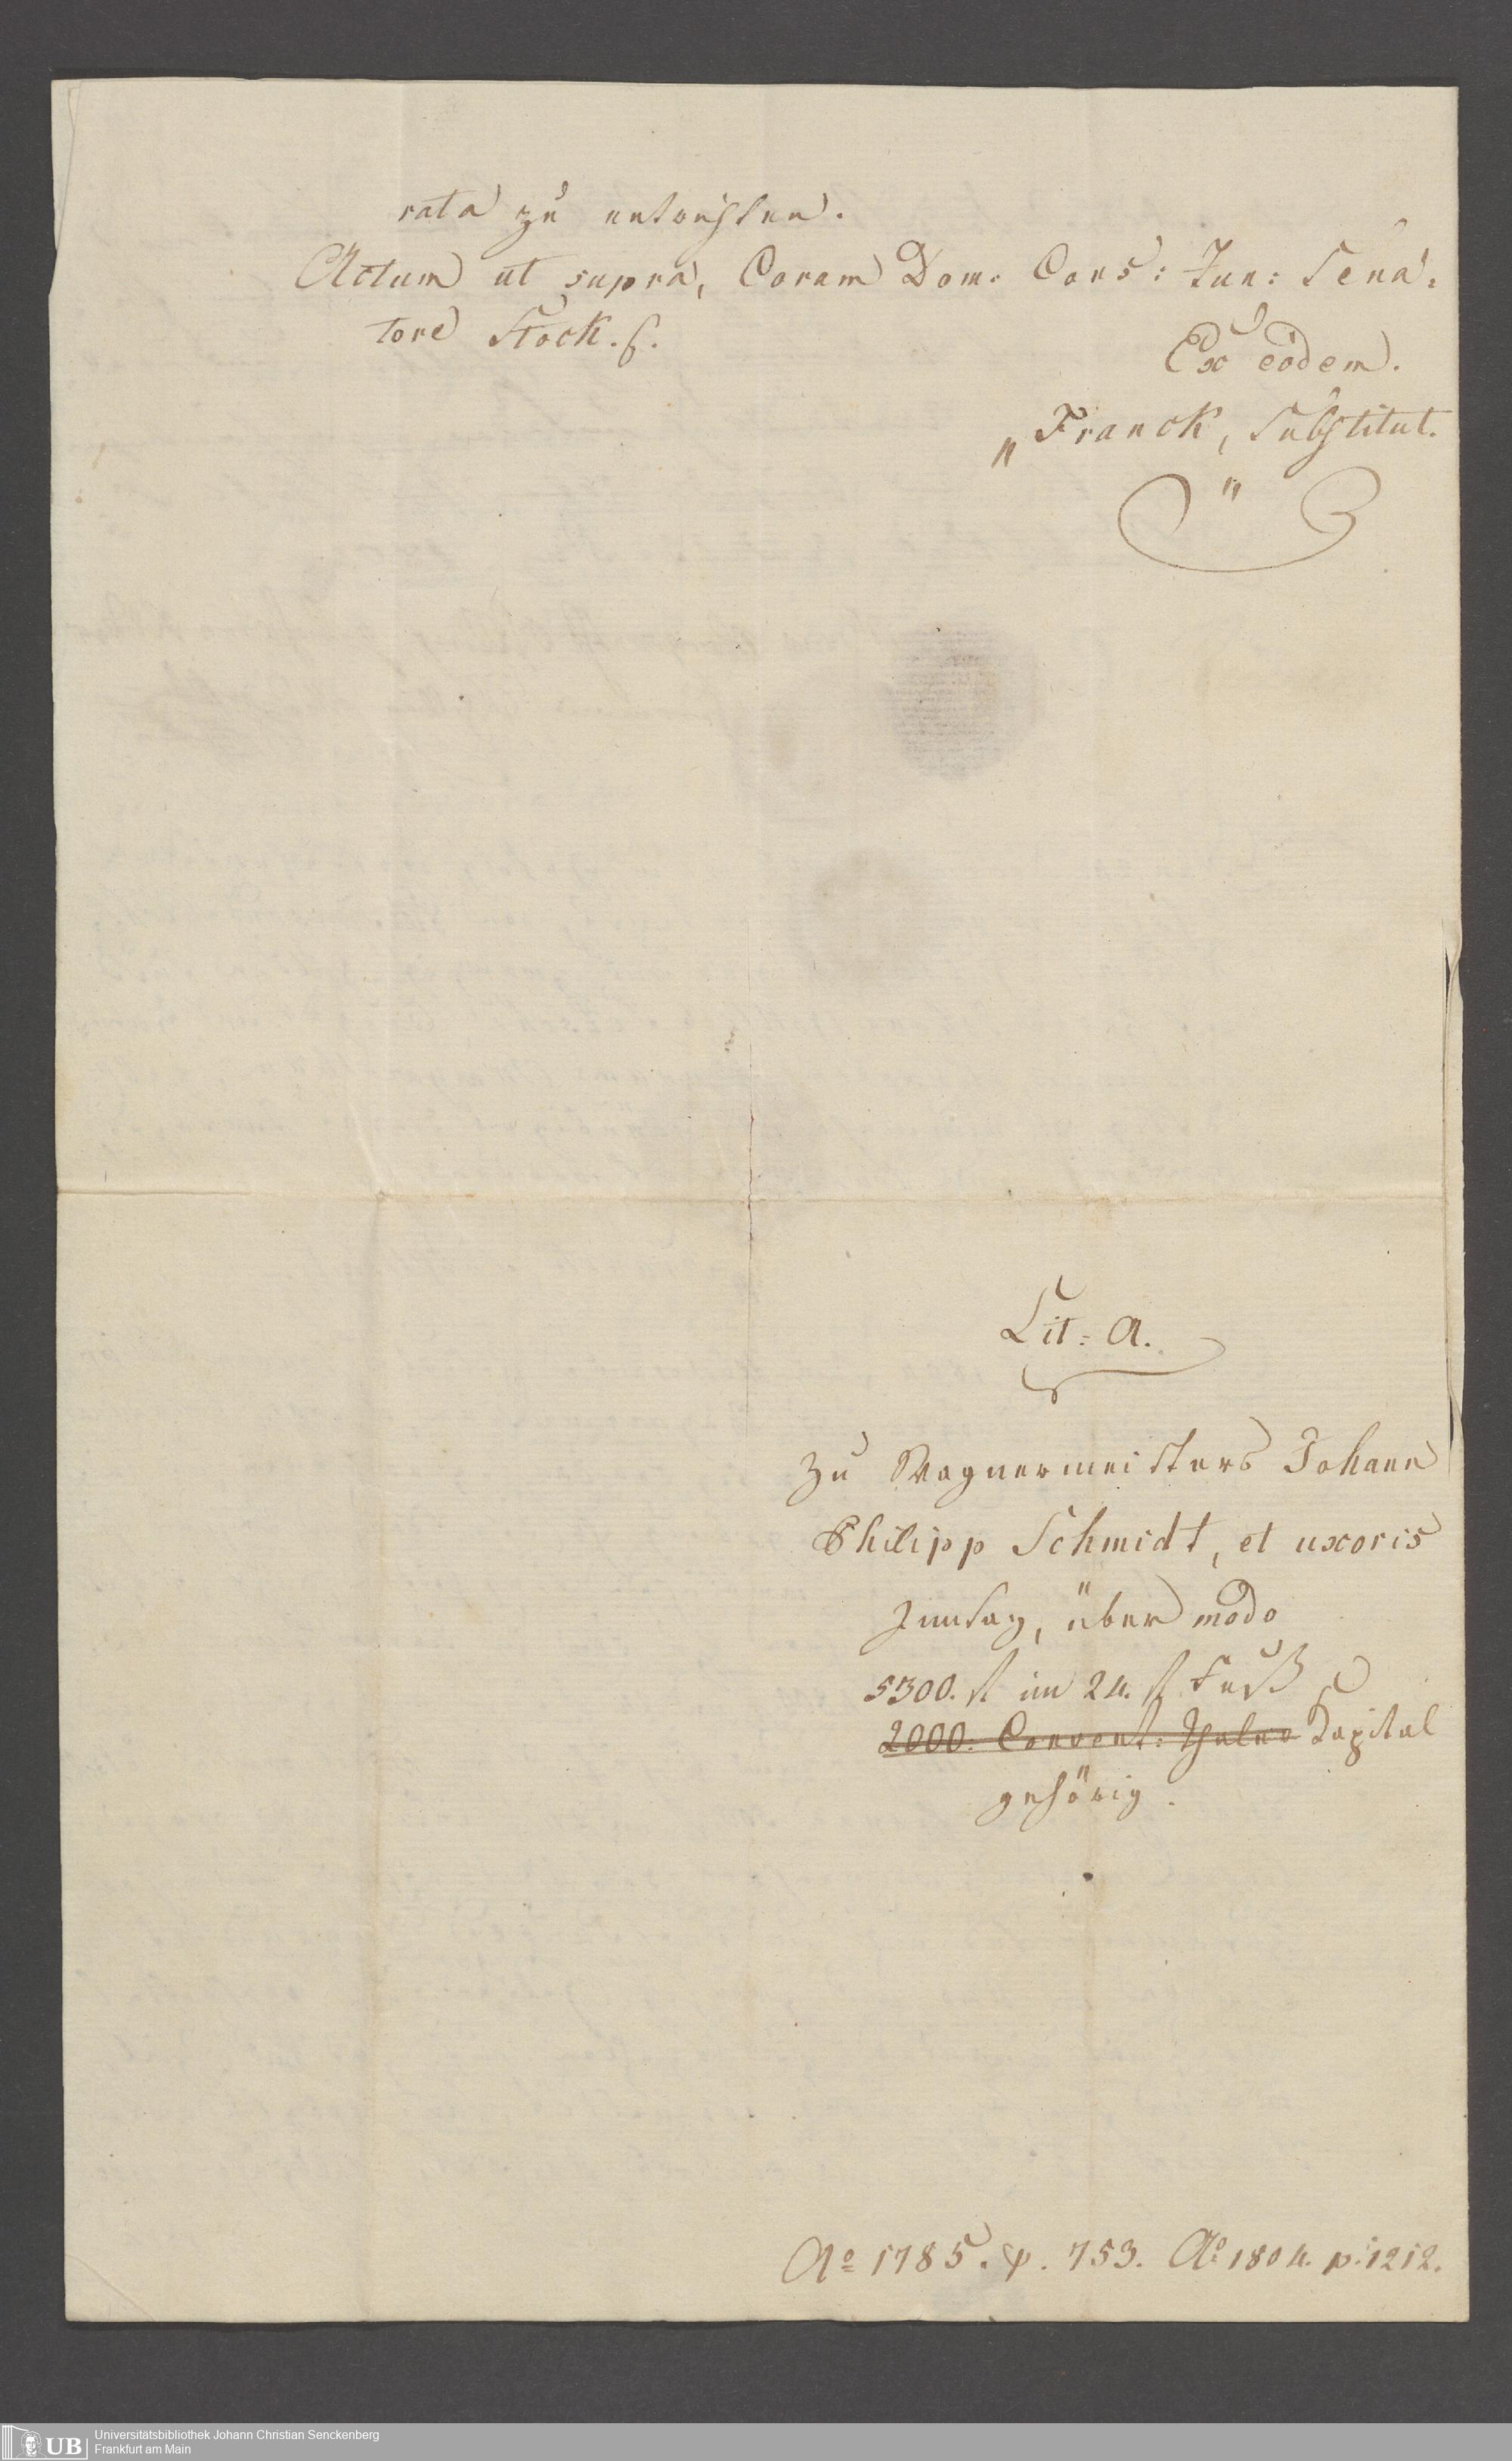 rata zu entrichten.
Actum ut supra, Coram Dom: Cons: Jun: Sena:
tore Stock. s.
Ex eodem.
„Franck, Substitut.
"
Lit: A.
Zu Wagnermeisters Johann
Philipp Schmidt, et uxoris
Innsaz, über modo
5300. fl im 24. fl Fuß
2000: Convent: Thaler Kapital
gehörig.
Ao 1785. p. 753. Ao 1804. p. 1212.
UB Universitätsbibliothek Johann Christian Senckenberg
Frankfurt am Main